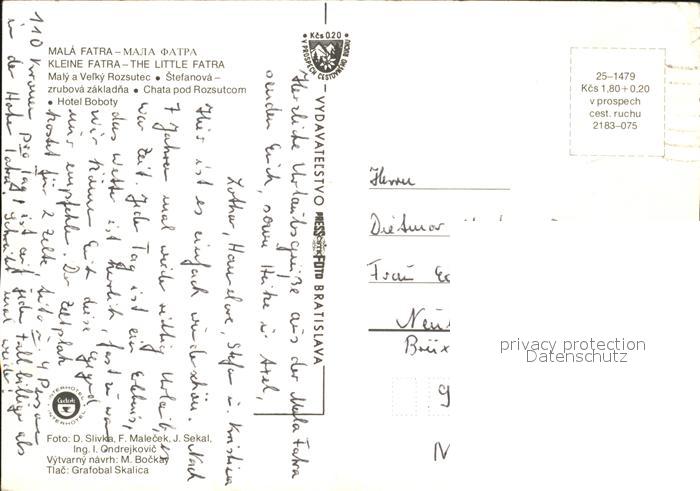 MALÁ FATRA – МАЛА ФАТРА
KLEINE FATRA – THE LITTLE FATRA
Malý a Veľký Rozsutec • Štefanová –
zrubová základňa • Chata pod Rozsutcom
• Hotel Boboty
Kčs 0,20
V PROSPECH CESTOVNÉHO RUCHU
– VYDAVATEĽSTVO PRESSFOTO BRATISLAVA
25–1479
Kčs 1,80 + 0,20
v prospech
cest. ruchu
2183–075
Herzliche Urlaubsgrüße aus der Mala Fatra
senden Euch, sowie Heike u. Axel,
Lothar, Hannelore, Stefan u. Kristina
Hier ist es einfach wunderschön. Nach
7 Jahren mal wieder richtig Urlaub, es
war Zeit. Jeder Tag ist ein Erlebnis,
das Wetter ist herrlich, fast zu warm
wir können Euch diese Gegend
nur empfehlen. Der Zeltplatz
kostet für 2 Zelte, Auto u. 4 Personen
110 Kronen pro Tag, ist auf jeden Fall billiger als
in der Hohen Tatra. Schreibt mal wieder!
Herrn
Dietmar
Frau
Brüx
privacy protection
Datenschutz
INTERHOTEL
Čedok
INTERHOTEL
Foto: D. Slivka, F. Maleček, J. Sekal,
Ing. I. Ondrejkovič
Výtvarný návrh: M. Bočkay
Tlač: Grafobal Skalica